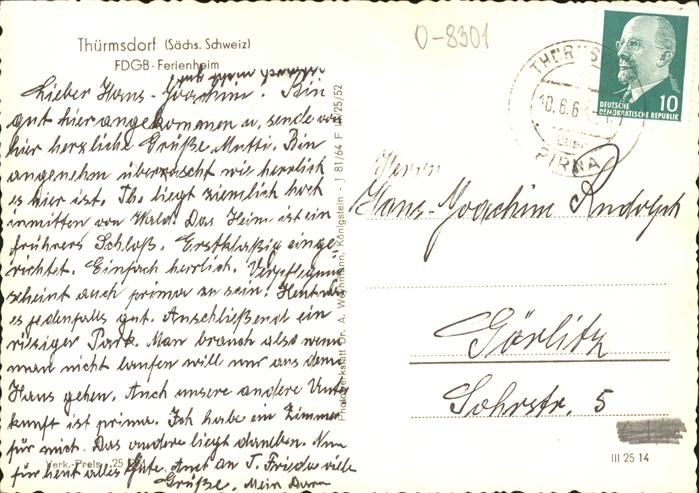 O-8301
Thürmsdorf (Sächs. Schweiz)
FDGB-Ferienheim
Lieber Hans-Joachim! Bin
gut hier angekommen u. sende von
hier herzliche Grüße Mutti. Bin
angenehm überrascht wie herrlich
es hier ist. Th. liegt ziemlich hoch
inmitten von Wald. Das Heim ist ein
frühres Schloß. Erstklaßig einge-
richtet. Einfach herrlich. Verpflegung
scheint auch prima zu sein. Heut war
es jedenfalls gut. Anschließend ein
riesiger Park. Man brauch also wenn
man nicht laufen will nur aus dem
Haus gehen. Auch unsere andere Unter
kunft ist prima. Ich habe ein Zimmer
für mich. Das andere liegt daneben. Nun
für heut alles Gute. Auch an T. Friedel viele
Grüße. Mein
Verk.-Preis 25
Photowerkstatt Dr. A. Wichmann, Königstein - J 81/64 F 25/52
DEUTSCHE
DEMOKRATISCHE REPUBLIK
10
10.6.6
PIRNA
Herrn
Hans-Joachim Rudolph
Görlitz
Sohrstr. 5
III 25 14